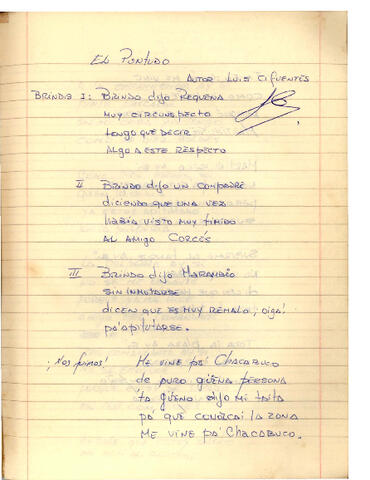 El Puntudo
Autor Luis Cifuentes
Brindis I: Brindo dijo Requena
muy circunspecto
tengo que decir
algo a este respecto
II Brindo dijo un compadre
diciendo que una vez
había visto muy tímido
al amigo Cortés
III Brindo dijo Marambio
sin inmutarse
dicen que es muy remalo, oiga
pa' apitutarse.
¡Nos fuimos! Me vine pa' Chacabuco
de puro güena persona
'ta güeno dijo mi taita
pa' que conozcai la zona
Me vine pa' Chacabuco.